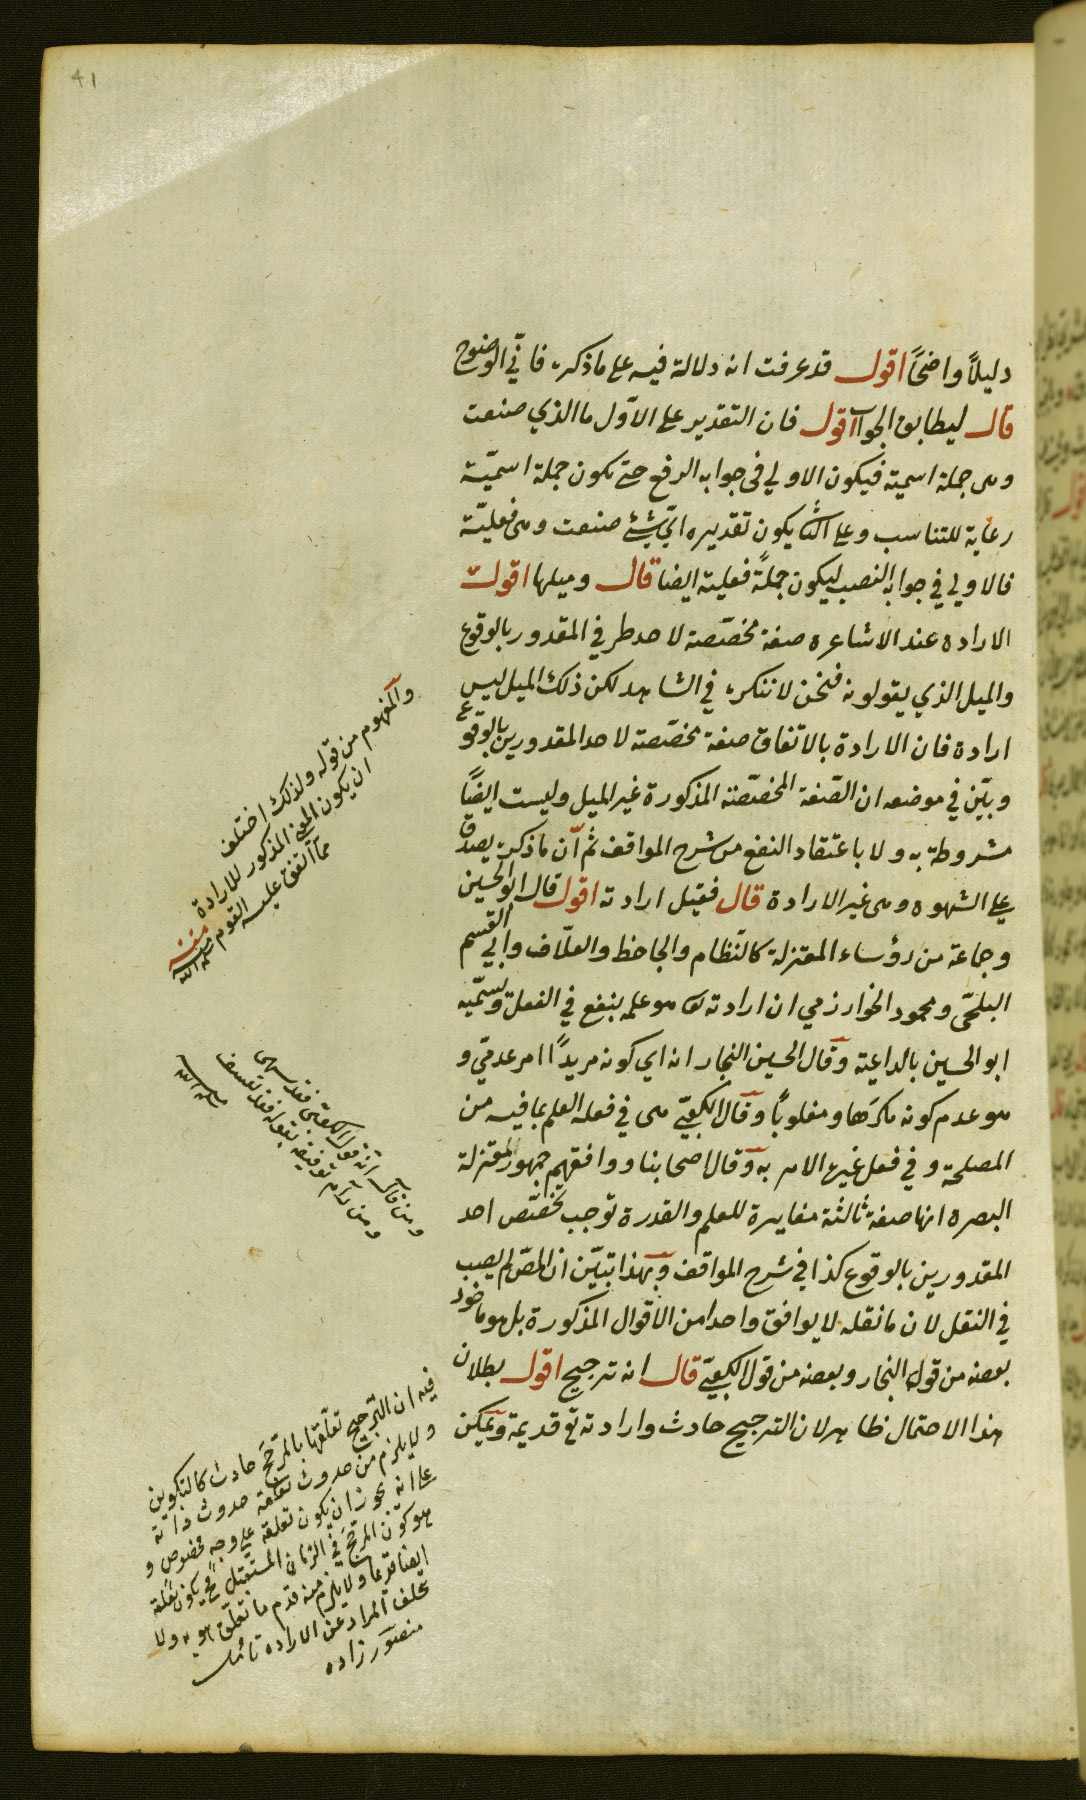 41
دليلاً واضحاً اقول قد عرفت انه دلالة فيه على ما ذكره فانّى الوضوح
قال ليطابق الجواب اقول فان التقدير على الاوّل ما الذي صنعت
وهى جملة اسمية فيكون الاولى فى جوابه الرفع حتى تكون جملة اسميّة
رعاية للتناسب وعلى الثا يكون تقديره ايّ شئ صنعت وهى فعليّة
فالاولى في جوابه النصب ليكون جملةً فعلية ايضا قال وميلها اقول
الارادة عند الاشاعرة صفة مخصّصة لاحد طرفي المقدور بالوقوع
والميل الذي يقولونه فنحن لا ننكره في الشاهد لكن ذلك الميل ليس
ارادة فان الارادة بالاتفاق صفة مخصّصة لاحد المقدورين بالوقوع
وبيّن في موضعه ان الصّفة المخصّصة المذكورة غير الميل وليست ايضاً
مشروطة به ولا باعتقاد النفع من شرح المواقف ثم انّ ما ذكره يصدق
على الشهوة وهى غير الارادة قال فقيل ارادته اقول قال ابو الحسين
وجماعة من رؤساء المعتزلة كالنّظام والجاحظ والعلّاف وابي القسم
البلخى ومحمود الخوارزمي ان ارادته تعا هو علمه بنفع في الفعل ويسمّيه
ابو الحسين بالداعية وقال الحسين النجار انه اي كونه مريداً امر عدميّ و
هو عدم كونه مكرها ومغلوباً وقال الكعبيّ هى في فعله العلم بما فيه من
المصلحة وفي فعل غيره الامر به وقال اصحابنا ووافقهم جمهور المعتزلة
البصرة انها صفة ثالثة مغايرة للعلم والقدرة توجب تخصّص احد
المقدورين بالوقوع كذا في شرح المواقف وبهذا تبيّن ان المصّ لم يصب
في النقل لان ما نقله لا يوافق واحدا من الاقوال المذكورة بل هو ماخوذ
بعضه من قول النجار وبعضه من قول الكعبيّ قال انه ترجيح اقول بطلان
هذا الاحتمال ظاهر لان الترجيح حادث وارادته تع قديمة ويمكن
والمفهوم من قوله ولذلك اختلف
ان يكون المعنى المذكور للارادة
مما اتفق عليه القوم
منه
ومن قال انه قول الكعبى فقد سهى
ومن رام توفيقه بقوله فقد تعسف
فيه ان الترجيح تعلّقها بالمرجّح حادث كالتكوين
ولا يلزم من حدوث تعلّقه حدوث ذاته
على انه يجوز ان يكون تعلقه على وجه مخصوص و
هو كون المرجّح في الزمان المستقبل فح يكون تعلقه
ايضا قديما ولا يلزم منه قدم ما تعلّق هو به ولا
تخلف المراد عن الارادة تأمل
منصور زاده